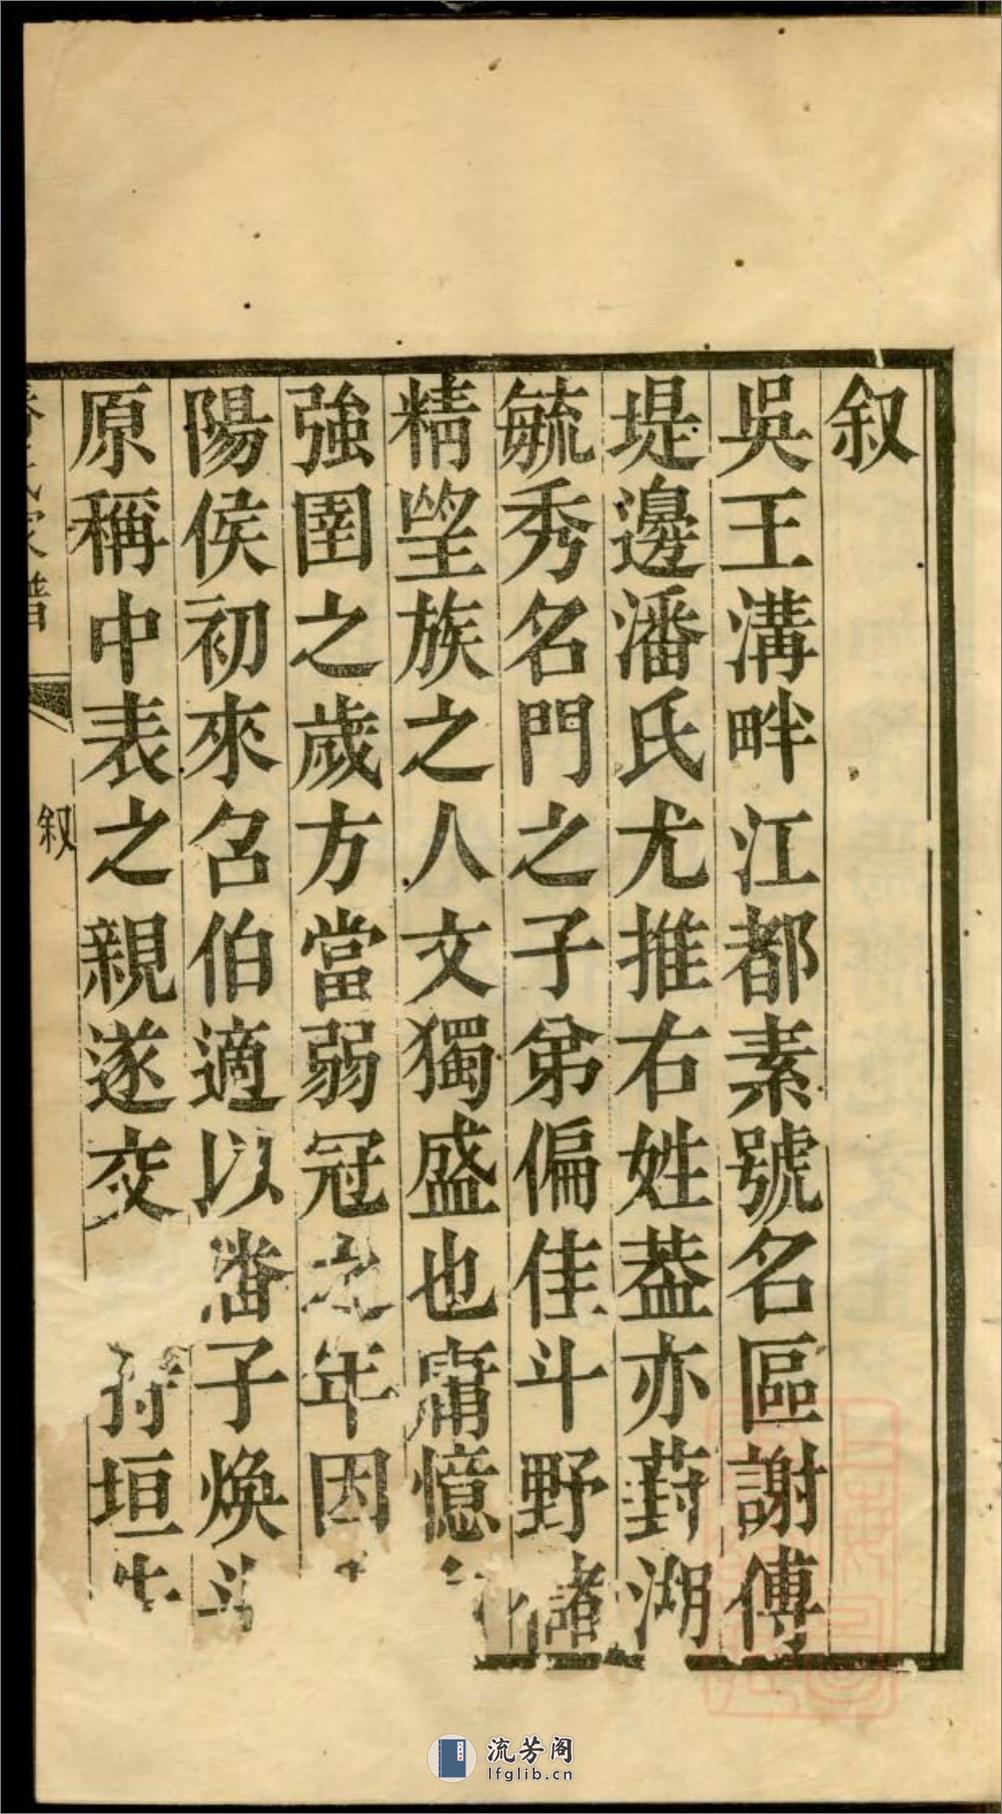 叙
吳王溝畔江都素號名區謝傅
堤邊潘氏尤推右姓葢亦葑湖
毓秀名門之子弟偏佳斗野
精朢族之人文獨盛也庸憶
強圉之歲方當弱冠之年因
陽侯初來召伯適以潘子煥
原稱中表之親遂交
垣
氏家譜
叙
流芳阁
lfglib.cn